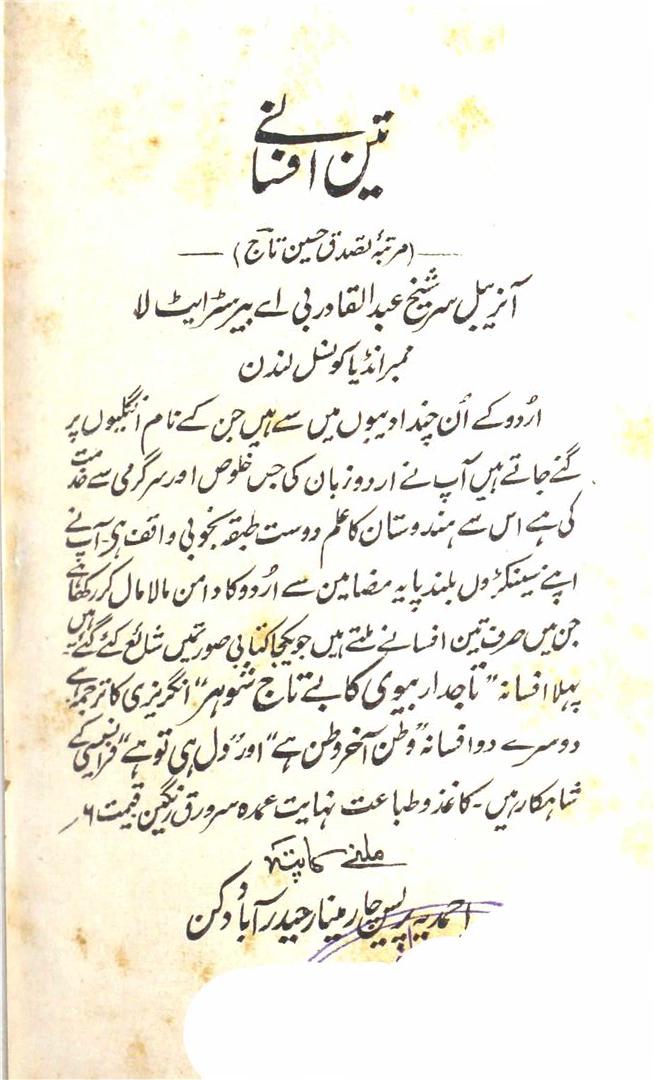 تین افسانے
(مرتبۂ تصدق حسین تاج)
آنریبل سر شیخ عبدالقادر بی اے بیرسٹرایٹ لا
ممبر انڈیا کونسل لندن
اُردو کے اُن چند ادیبوں میں سے ہیں جن کے نام انگلیوں پر
گنے جاتے ہیں آپ نے اردو زبان کی جس خلوص اور سرگرمی سے خدمت
کی ہے اس سے ہندوستان کا علم دوست طبقہ بخوبی واقف ہی۔ آپ نے
اپنے سینکڑوں بلند پایہ مضامین سے اُردو کا دامن مالامال کر رکھا ہے
جن میں صرف تین افسانے ملتے ہیں جو یکجا کتابی صورتمیں شائع کئے گئے ہیں۔
پہلا افسانہ "تاجدار بیوی کا بے تاج شوہر" انگریزی کا ترجمہ ہے
دوسرے دو افسانہ "وطن آخر وطن ہے" اور "دل ہی تو ہے" فرانسیسی کے
شاہکار ہیں۔ کاغذ و طباعت نہایت عمدہ سرورق رنگین قیمت ۶؍
ملنے کا پتہ
احمدیہ پریس چار مینار حیدرآباد دکن